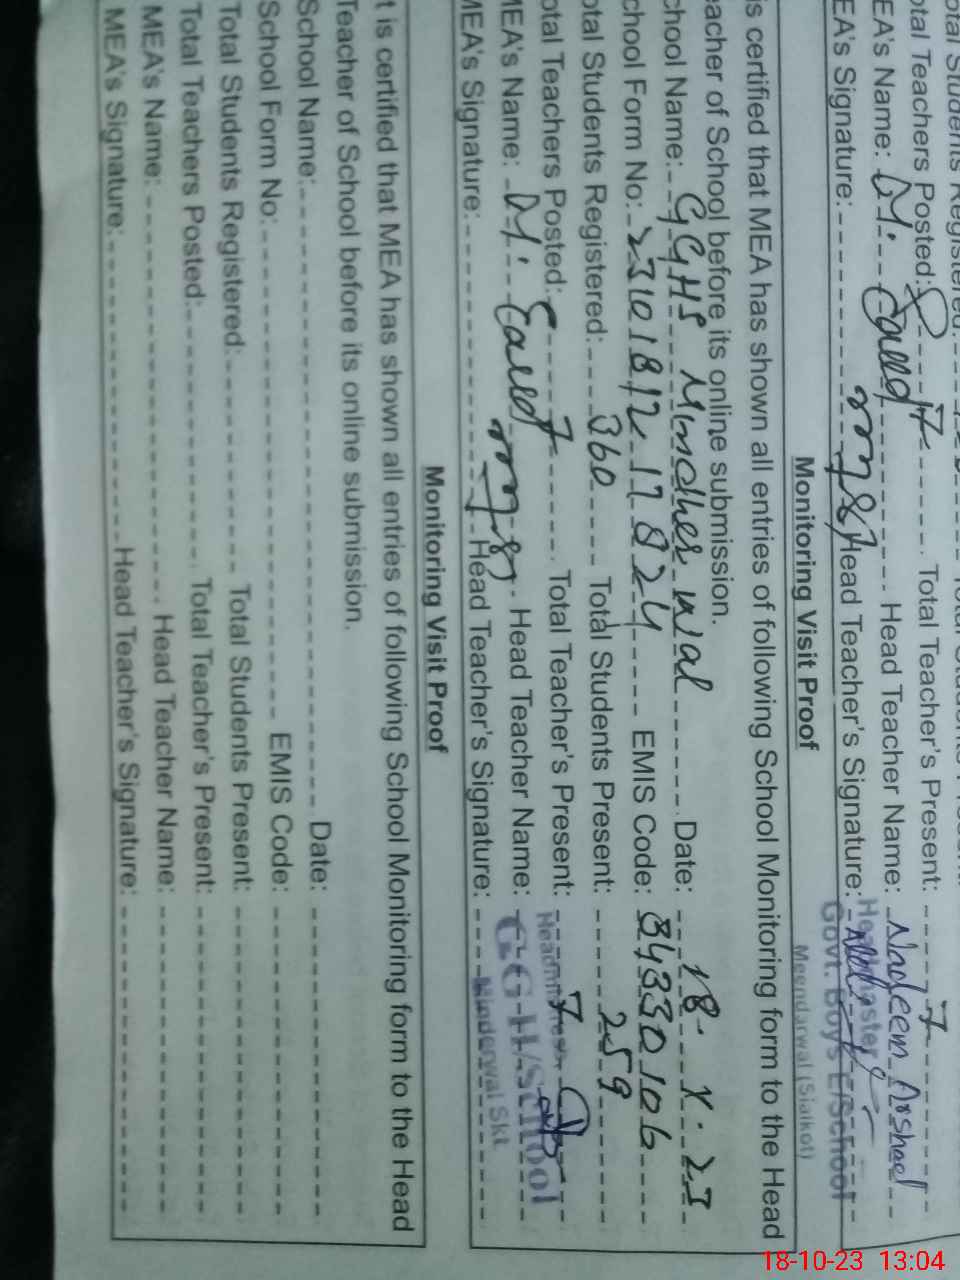 otal Students Registered:
otal Teachers Posted: 7 Total Teacher's Present: 7
EA's Name: M. Head Teacher Name: Nadeem Arshad
EA's Signature: Head Teacher's Signature:
Headmaster
Govt. Boys E/School
Meendarwal (Sialkot)
Monitoring Visit Proof
is certified that MEA has shown all entries of following School Monitoring form to the Head
eacher of School before its online submission.
chool Name: GGHS Minder wal Date: 18. X. 23
chool Form No: 231018121 7824 EMIS Code: 34330106
otal Students Registered: 360 Total Students Present: 259
otal Teachers Posted: 7 Total Teacher's Present: 7
MEA's Name: M. Head Teacher Name:
MEA's Signature: Head Teacher's Signature:
Headmistress
G.G.H/School
Minderwal Skt
Monitoring Visit Proof
t is certified that MEA has shown all entries of following School Monitoring form to the Head
Teacher of School before its online submission.
School Name: Date:
School Form No: EMIS Code:
Total Students Registered: Total Students Present:
Total Teachers Posted: Total Teacher's Present:
MEA's Name: Head Teacher Name:
MEA's Signature: Head Teacher's Signature:
18-10-23 13:04